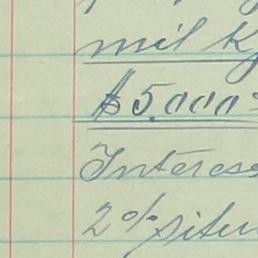 mil K
$5.000=
Interes
2% situ